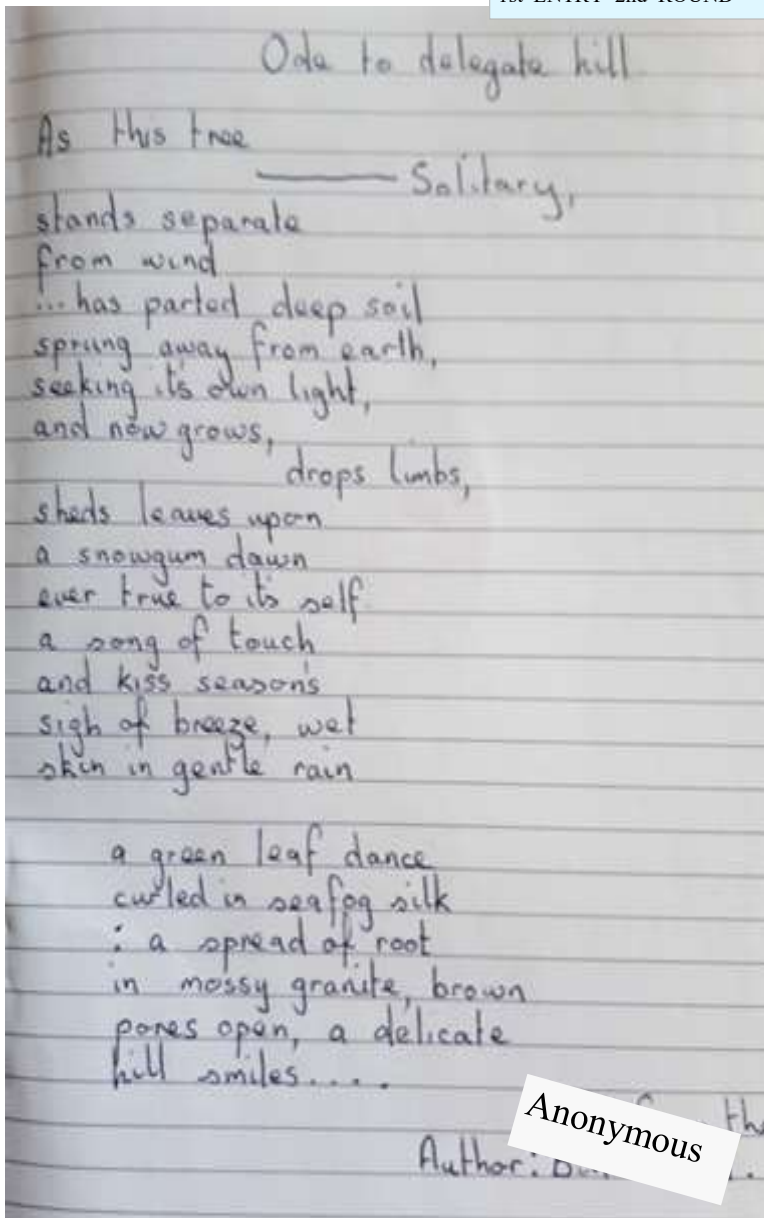 1st ENTRY 2nd ROUND
Ode to delegate hill
As this tree
—— Solitary,
stands separate
from wind
...has parted deep soil
sprung away from earth,
seeking it's own light,
and now grows,
drops limbs,
sheds leaves upon
a snowgum dawn
ever true to it's self
a song of touch
and kiss seasons
sigh of breeze, wet
skin in gentle rain
a green leaf dance
curled in seafog silk
: a spread of root
in mossy granite, brown
pores open, a delicate
hill smiles....
Anonymous
Author: